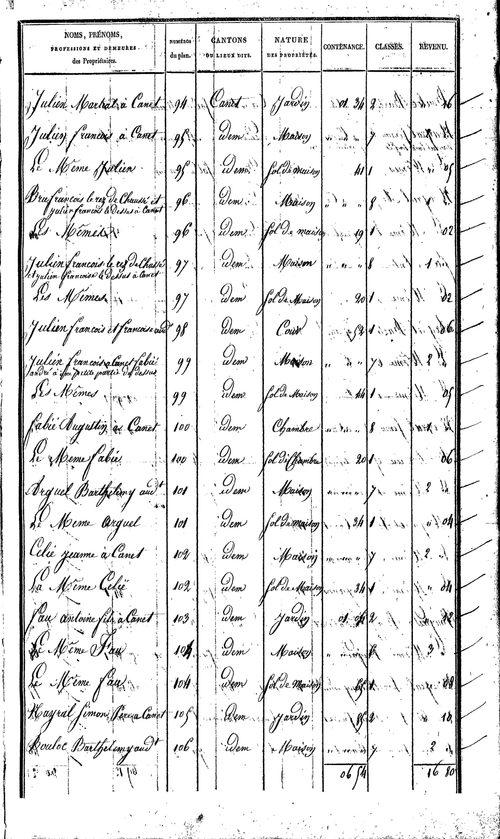 NOMS, PRÉNOMS, PROFESSIONS ET DEMEURES des Propriétaires. NUMÉROS du plan. CANTONS OU LIEUX DITS. NATURE DES PROPRIÉTÉS. CONTENANCE. CLASSES. REVENU.
Julien à Canet 94 Canet Jardin 01 34 2
Julien francois à Canet 95 idem Maison 7
Le Même Julien 95 idem sol de maison 41 1 05
francois le rez de Chaussé et
julien francois le dessus à Canet 96 idem Maison 8
Les Mêmes 96 idem sol de maison 19 1 02
Julien francois le rez de Chaussé
et julien francoise le dessus à Canet 97 idem Maison 8 1
Les Mêmes 97 idem sol de Maison 20 1 02
Julien francois et francoise audt 98 idem Cour 52 1 06
Julien francois à Canet fabié
andré à petite partie du dessus 99 idem Maison 7 2
Les Mêmes 99 idem sol de Maison 44 1 05
fabié Augustin à Canet 100 idem Chambre 8
Le Même fabié 100 idem sol de Chambre 20 1 06
Arguel Barthelemy audt 101 idem Maison 7 2
Le Même arguel 101 idem sol de maison 34 1 04
Célié jeanne à Canet 102 idem Maison 7 2
La Même Célié 102 idem sol de Maison 34 1 04
fau antoine fils à Canet 103 idem Jardin 01 2
Le Même fau 104 idem Maison 3
Le Même fau 104 idem sol de Maison 65 1 08
Mayral Simon à Canet 105 idem Jardin 85 2 10
Bouloc Barthelemy audt 106 idem Maison 7 2
06 54 16 80